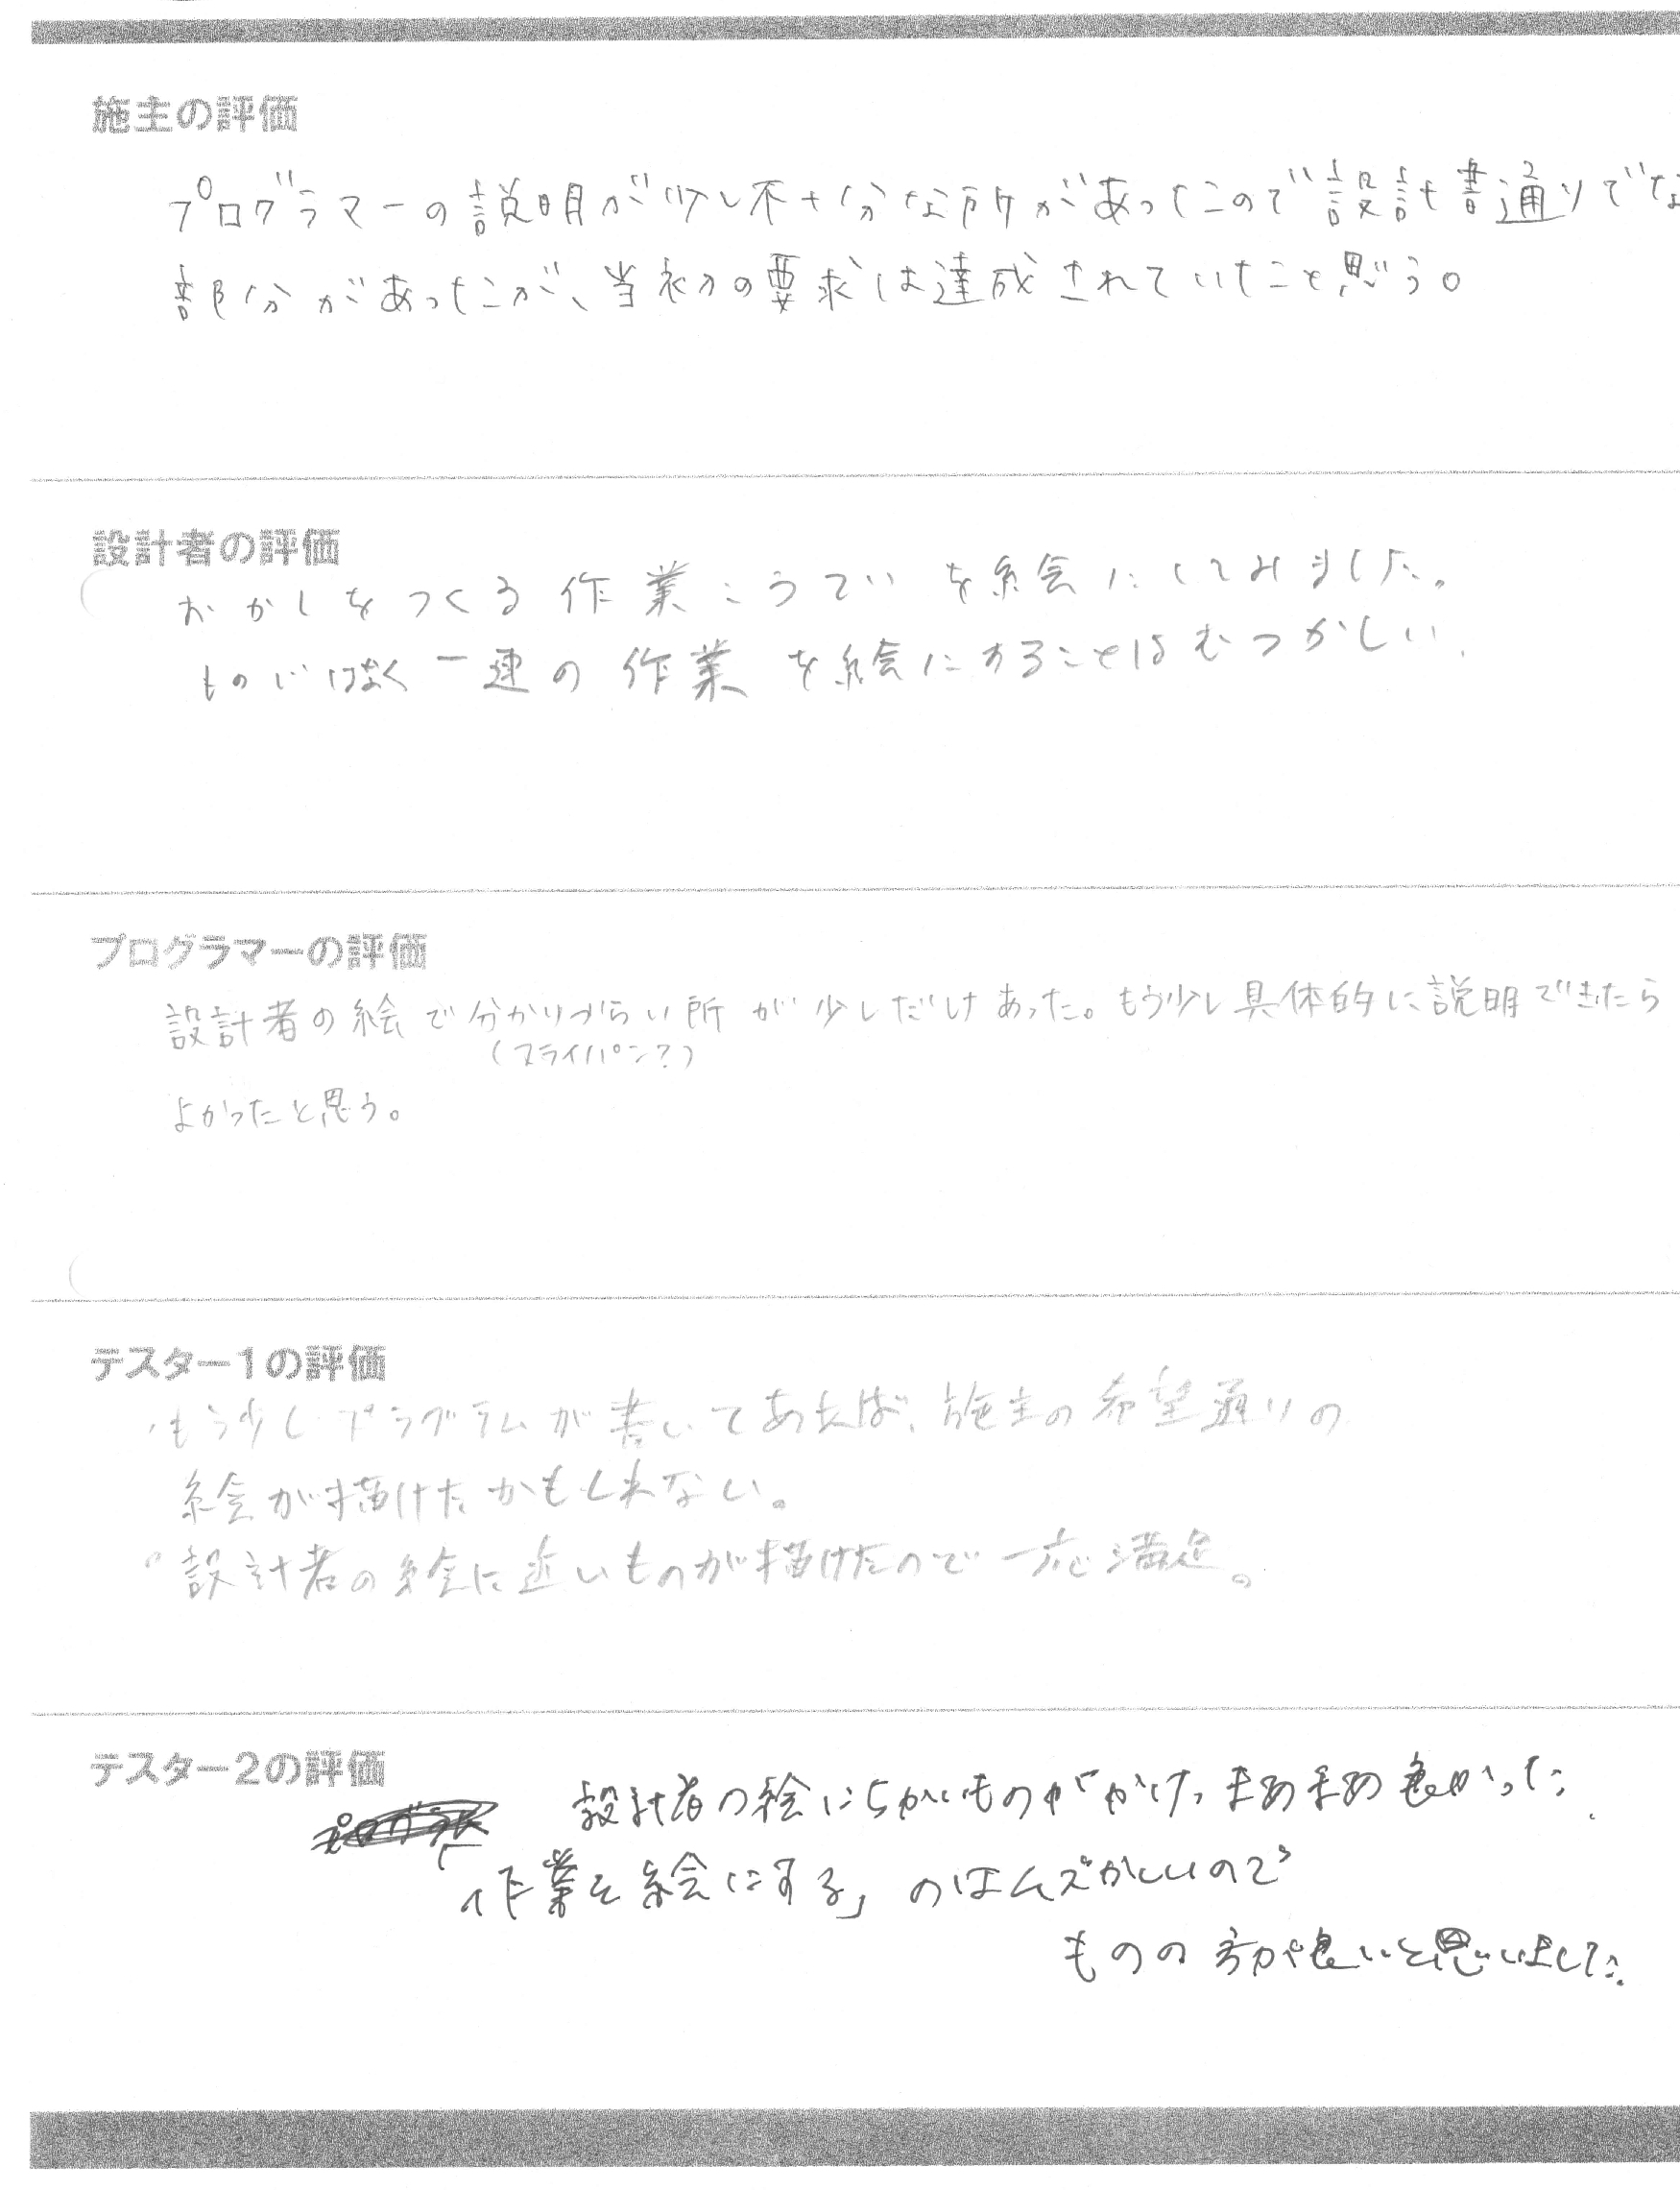 施主の評価
プログラマーの説明が少し不十分な所があったので設計書通りでな
部分があったが、当初の要求は達成されていたと思う。
設計者の評価
おかしをつくる作業こうていを絵にしてみました。
ものではなく一連の作業を絵にすることはむつかしい.
プログラマーの評価
設計者の絵で分かりづらい所が少しだけあった。もう少し具体的に説明できたら
(フライパン?)
よかったと思う。
テスター1の評価
・もう少しプラグラムが書いてあれば、施主の希望通りの
絵が描けたかもしれない。
・設計者の絵に近いものが描けたので一応満足。
テスター2の評価
設計者の絵にちかいものがかけ、まあまあ良かった.
「作業を絵にする」のはムズかしいので
ものの方が良いと思いました.